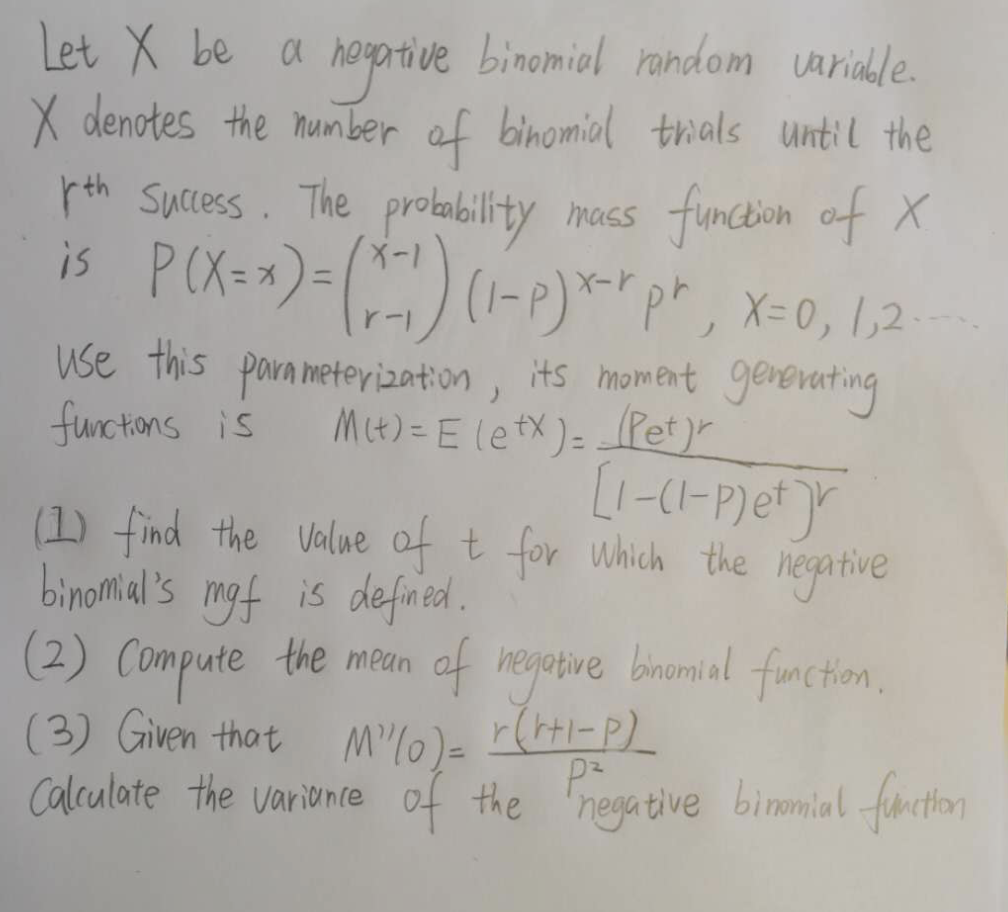 Let X be a negative binomial random variable.
X denotes the number of binomial trials until the
rth success. The probability mass function of X
is P(X=x)=(x-1 r-1)(1-P)^x-r p^r, X=0, 1,2.....
use this parameterization, its moment generating
functions is M(t)=E(e^tX)= (Pe^t)^r / [1-(1-P)e^t]^r
(1) find the value of t for which the negative
binomial's mgf is defined.
(2) Compute the mean of negative binomial function.
(3) Given that M''(0)= r(r+1-P) / P²
Calculate the variance of the negative binomial function